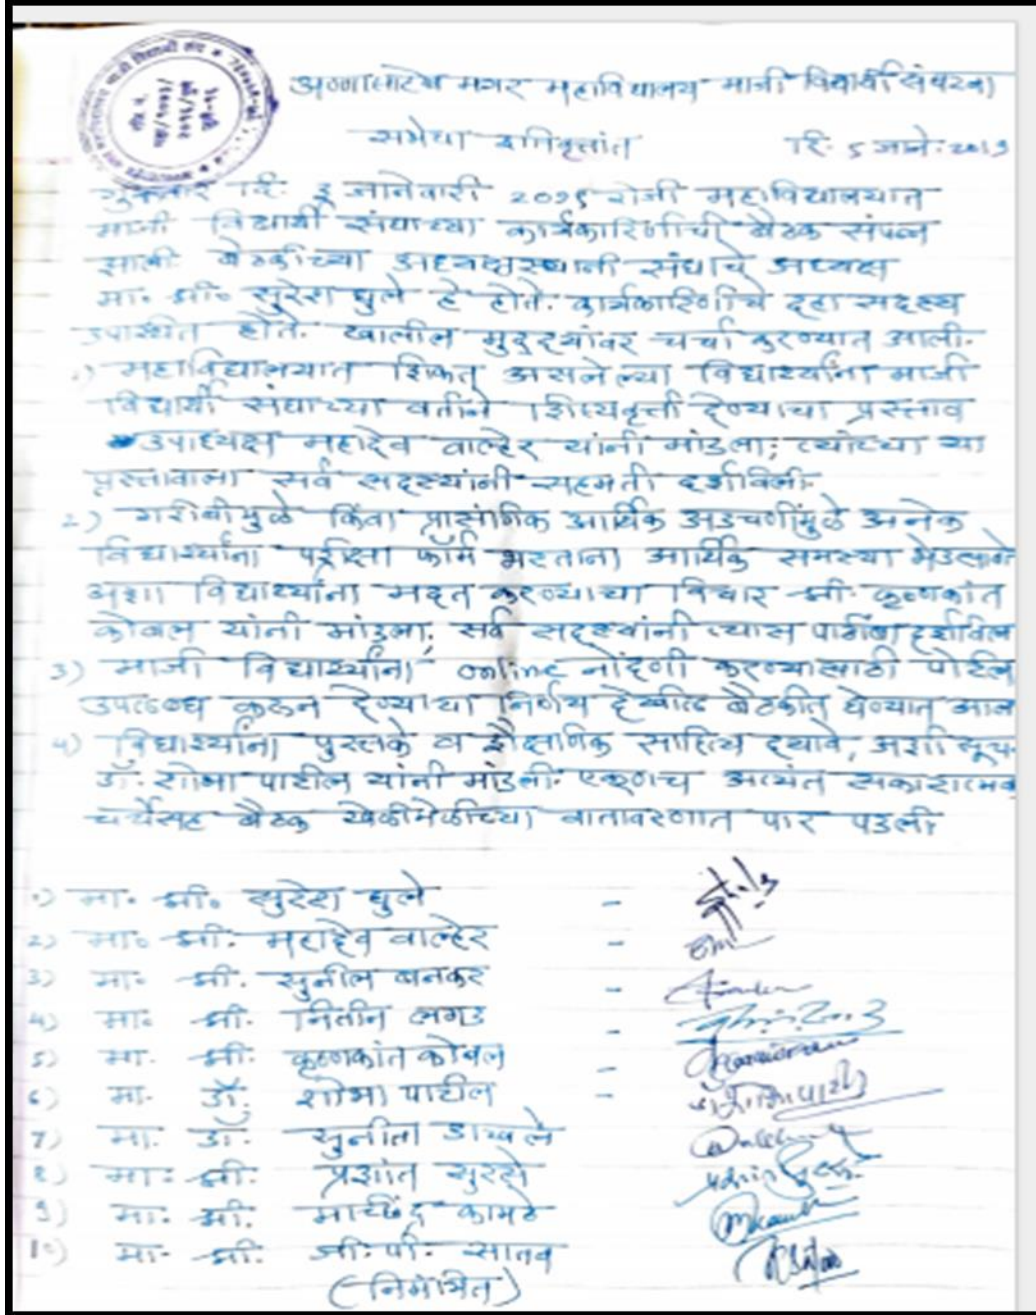 अण्णासाहेब मगर महाविद्यालय माजी विद्यार्थी संघटना
सभेचा इतिवृत्तांत दि. ५ जाने. 2019
शुक्रवार दि. जानेवारी रोजी महाविद्यालयात
माजी विद्यार्थी संघाच्या कार्यकारिणीची बैठक संपन्न
झाली बैठकीच्या अध्यक्षस्थानी संघाचे अध्यक्ष
मा. श्री. सुरेश घुले हे होते. कार्यकारिणीचे दहा सदस्य
उपस्थित होते. खालील मुद्द्यांवर चर्चा करण्यात आली.
१) महाविद्यालयात शिकत असलेल्या विद्यार्थ्यांना माजी
विद्यार्थी संघाच्या वतीने शिष्यवृत्ती देण्याचा प्रस्ताव
उपाध्यक्ष महादेव वाल्हेर यांनी मांडला; त्यांच्या या
प्रस्तावाला सर्व सदस्यांनी सहमती दर्शविली.
2) गरीबीमुळे किंवा प्रासंगिक आर्थिक अडचणींमुळे अनेक
विद्यार्थ्यांना परीक्षा फॉर्म भरताना आर्थिक समस्या
अशा विद्यार्थ्यांना मदत करण्याचा विचार श्री. कृष्णकांत
कोबल यांनी मांडला; सर्व सदस्यांनी त्यास पाठिंबा दर्शविला
3) माजी विद्यार्थ्यांना online नोंदणी करण्यासाठी पोर्टल
उपलब्ध करून देण्याचा निर्णय देखील बैठकीत घेण्यात आला
४) विद्यार्थ्यांना पुस्तके व शैक्षणिक साहित्य द्यावे, अशी सूच
डॉ. शोभा पाटील यांनी मांडली. एकूणच अत्यंत सकारात्मक
चर्चेसह बैठक खेळीमेळीच्या वातावरणात पार पडली
१) मा. श्री. सुरेश घुले -
2) मा. श्री. महादेव वाल्हेर -
3) मा. श्री. सुनील बनकर -
४) मा. श्री. नितीन लगड -
5) मा. श्री. कृष्णकांत कोबल -
6) मा. डॉ. शोभा पाटील -
7) मा. डॉ. सुनीता डाखले
8) मा. श्री. प्रशांत सुरसे
9) मा. श्री. मच्छिंद्र कामठे
10) मा. श्री. जी. पी. सातव
(निमंत्रित)